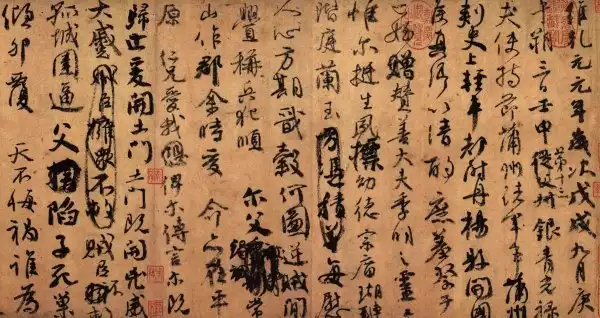 維乾元元年歲次戊戌九月庚
午朔三日壬申第十三從父叔銀青光祿
夫使持節蒲州諸軍事蒲州
刺史上輕車都尉丹楊縣開國
侯真卿以清酌庶羞祭于
亡姪贈贊善大夫季明之靈曰
惟爾挺生夙標幼德宗廟瑚璉
階庭蘭玉方憑積善每慰
人心方期戩穀何圖逆賊閒
釁稱兵犯順爾父竭誠常
山作郡余時受命亦在平
原仁兄愛我俾爾傳言爾既
歸止爰開土門土門既開兇威
大蹙賊臣擁眾不救賊臣不救
孤城圍逼父陷子死巢
傾卵覆天不悔禍誰為